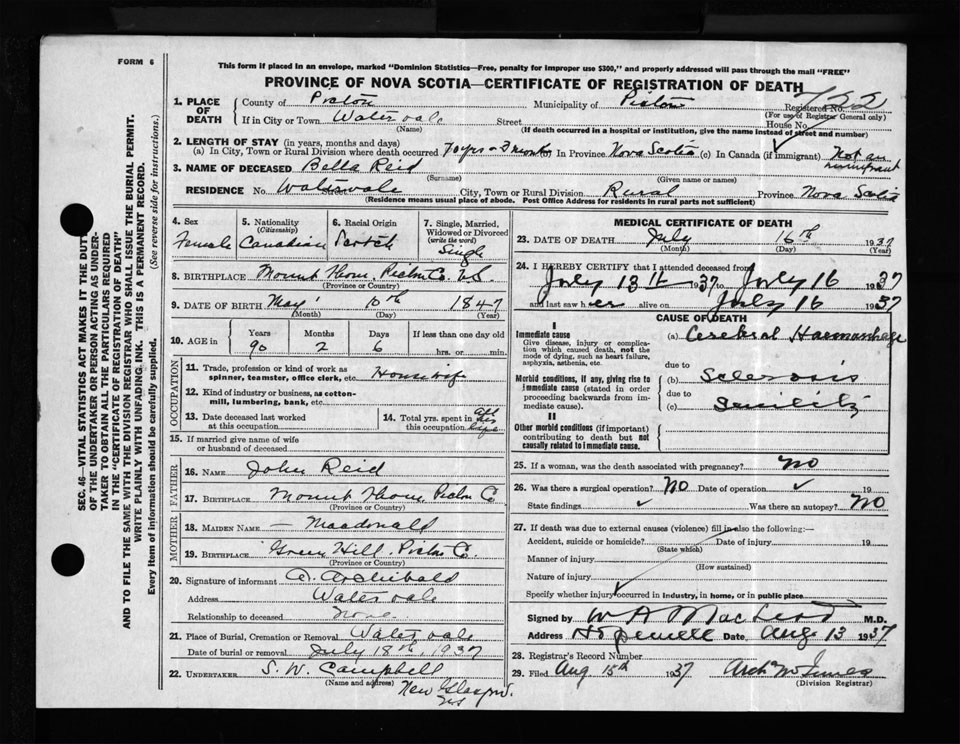 FORM 6
This form if placed in an envelope, marked "Dominion Statistics—Free, penalty for improper use $300," and properly addressed will pass through the mail "FREE"
PROVINCE OF NOVA SCOTIA—CERTIFICATE OF REGISTRATION OF DEATH
1. PLACE OF DEATH
County of Pictou Municipality of Pictou Registered No.
(For use of Registrar General only)
If in City or Town Watervale Street House No.
(Name) (If death occurred in a hospital or institution, give the name instead of street and number)
2. LENGTH OF STAY (in years, months and days)
(a) In City, Town or Rural Division where death occurred 90 yrs - 2 months (b) In Province Nova Scotia (c) In Canada (if immigrant) Not an immigrant
3. NAME OF DECEASED Bella Reid
(Surname) (Given name or names)
RESIDENCE No. Watervale Street City, Town or Rural Division Rural Province Nova Scotia
(Residence means usual place of abode. Post Office Address for residents in rural parts not sufficient)
4. Sex
Female
5. Nationality
(Citizenship)
Canadian
6. Racial Origin
Scotch
7. Single, Married, Widowed or Divorced
(write the word)
Single
8. BIRTHPLACE Mount Thom, Pictou Co. N.S.
(Province or Country)
9. DATE OF BIRTH May 10th 1847
(Month) (Day) (Year)
10. AGE in
Years Months Days If less than one day old
90 2 6 hrs. or min.
OCCUPATION
11. Trade, profession or kind of work as spinner, teamster, office clerk, etc. Housewife
12. Kind of industry or business, as cotton-mill, lumbering, bank, etc.
13. Date deceased last worked at this occupation
14. Total yrs. spent in this occupation all her life
15. If married give name of wife or husband of deceased
FATHER
16. NAME John Reid
17. BIRTHPLACE Mount Thom, Pictou C.
(Province or Country)
MOTHER
18. MAIDEN NAME — Macdonald
19. BIRTHPLACE Green Hill, Pictou C.
(Province or Country)
20. Signature of informant A. Archibald
Address Watervale
Relationship to deceased None
21. Place of Burial, Cremation or Removal Watervale
Date of burial or removal July 18th, 1937
22. UNDERTAKER S. W. Campbell
(Name and address) New Glasgow. NS
MEDICAL CERTIFICATE OF DEATH
23. DATE OF DEATH July 16th 1937
(Month) (Day) (Year)
24. I HEREBY CERTIFY that I attended deceased from
July 13th 1937 to July 16 1937
and last saw her alive on July 16 1937
CAUSE OF DEATH
I
Immediate cause
Give disease, injury or complication which caused death, not the mode of dying, such as heart failure, asphyxia, asthenia, etc.
(a) Cerebral Haemorrhage
due to
Morbid conditions, if any, giving rise to immediate cause (stated in order proceeding backwards from immediate cause).
(b) Sclerosis
due to
(c) Senility
II
Other morbid conditions (if important) contributing to death but not causally related to immediate cause.
25. If a woman, was the death associated with pregnancy? No
26. Was there a surgical operation? No Date of operation 19
State findings Was there an autopsy? No
27. If death was due to external causes (violence) fill in also the following:—
Accident, suicide or homicide? Date of injury 19
(State which)
Manner of injury
(How sustained)
Nature of injury
Specify whether injury occurred in industry, in home, or in public place
Signed by W A MacLeod M.D.
Address Hopewell Date Aug 13 1937
28. Registrar's Record Number
29. Filed Aug 15th 1937 Arch McInnes
(Division Registrar)
SEC. 46—VITAL STATISTICS ACT MAKES IT THE DUTY
OF THE UNDERTAKER OR PERSON ACTING AS UNDER-
TAKER TO OBTAIN ALL THE PARTICULARS REQUIRED
IN THE "CERTIFICATE OF REGISTRATION OF DEATH"
AND TO FILE THE SAME WITH THE DIVISION REGISTRAR WHO SHALL ISSUE THE BURIAL PERMIT.
WRITE PLAINLY WITH UNFADING INK. THIS IS A PERMANENT RECORD.
Every item of information should be carefully supplied. (See reverse side for instructions.)